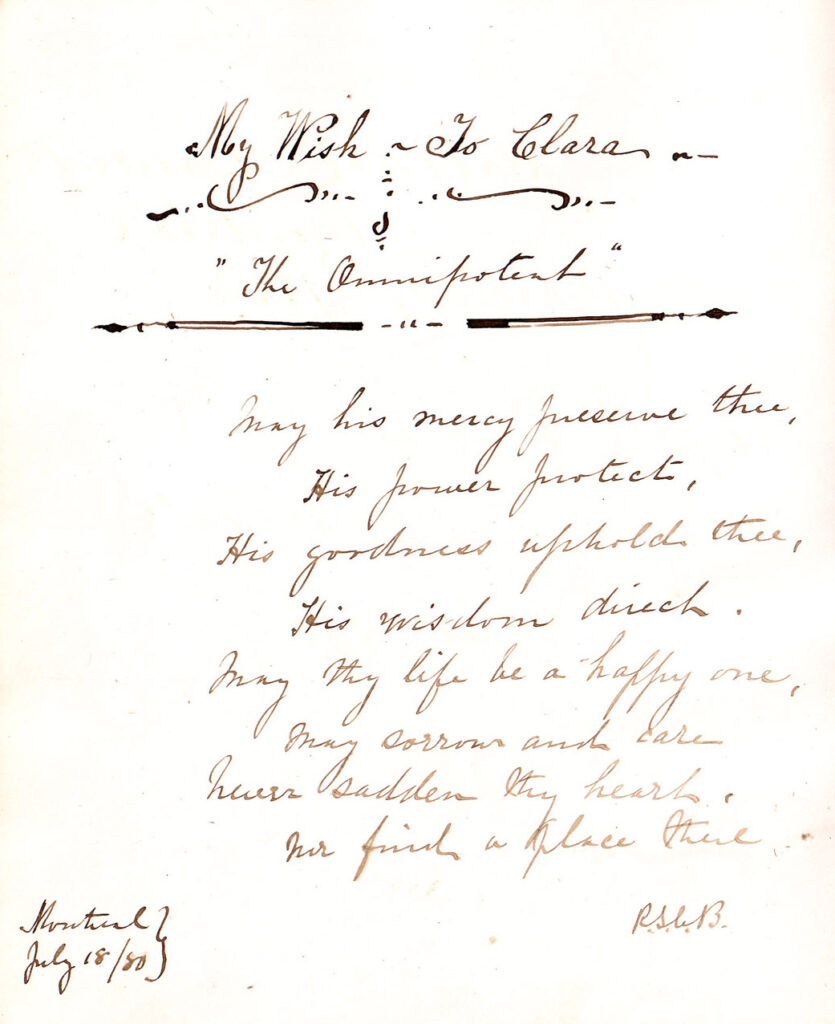 My Wish ~ To Clara
"The Omnipotent"
May his mercy preserve thee,
His power protect,
His goodness uphold thee,
His wisdom direct.
May thy life be a happy one,
May sorrow and care
Never sadden thy heart,
Nor find a place there
Montreal
July 18/80